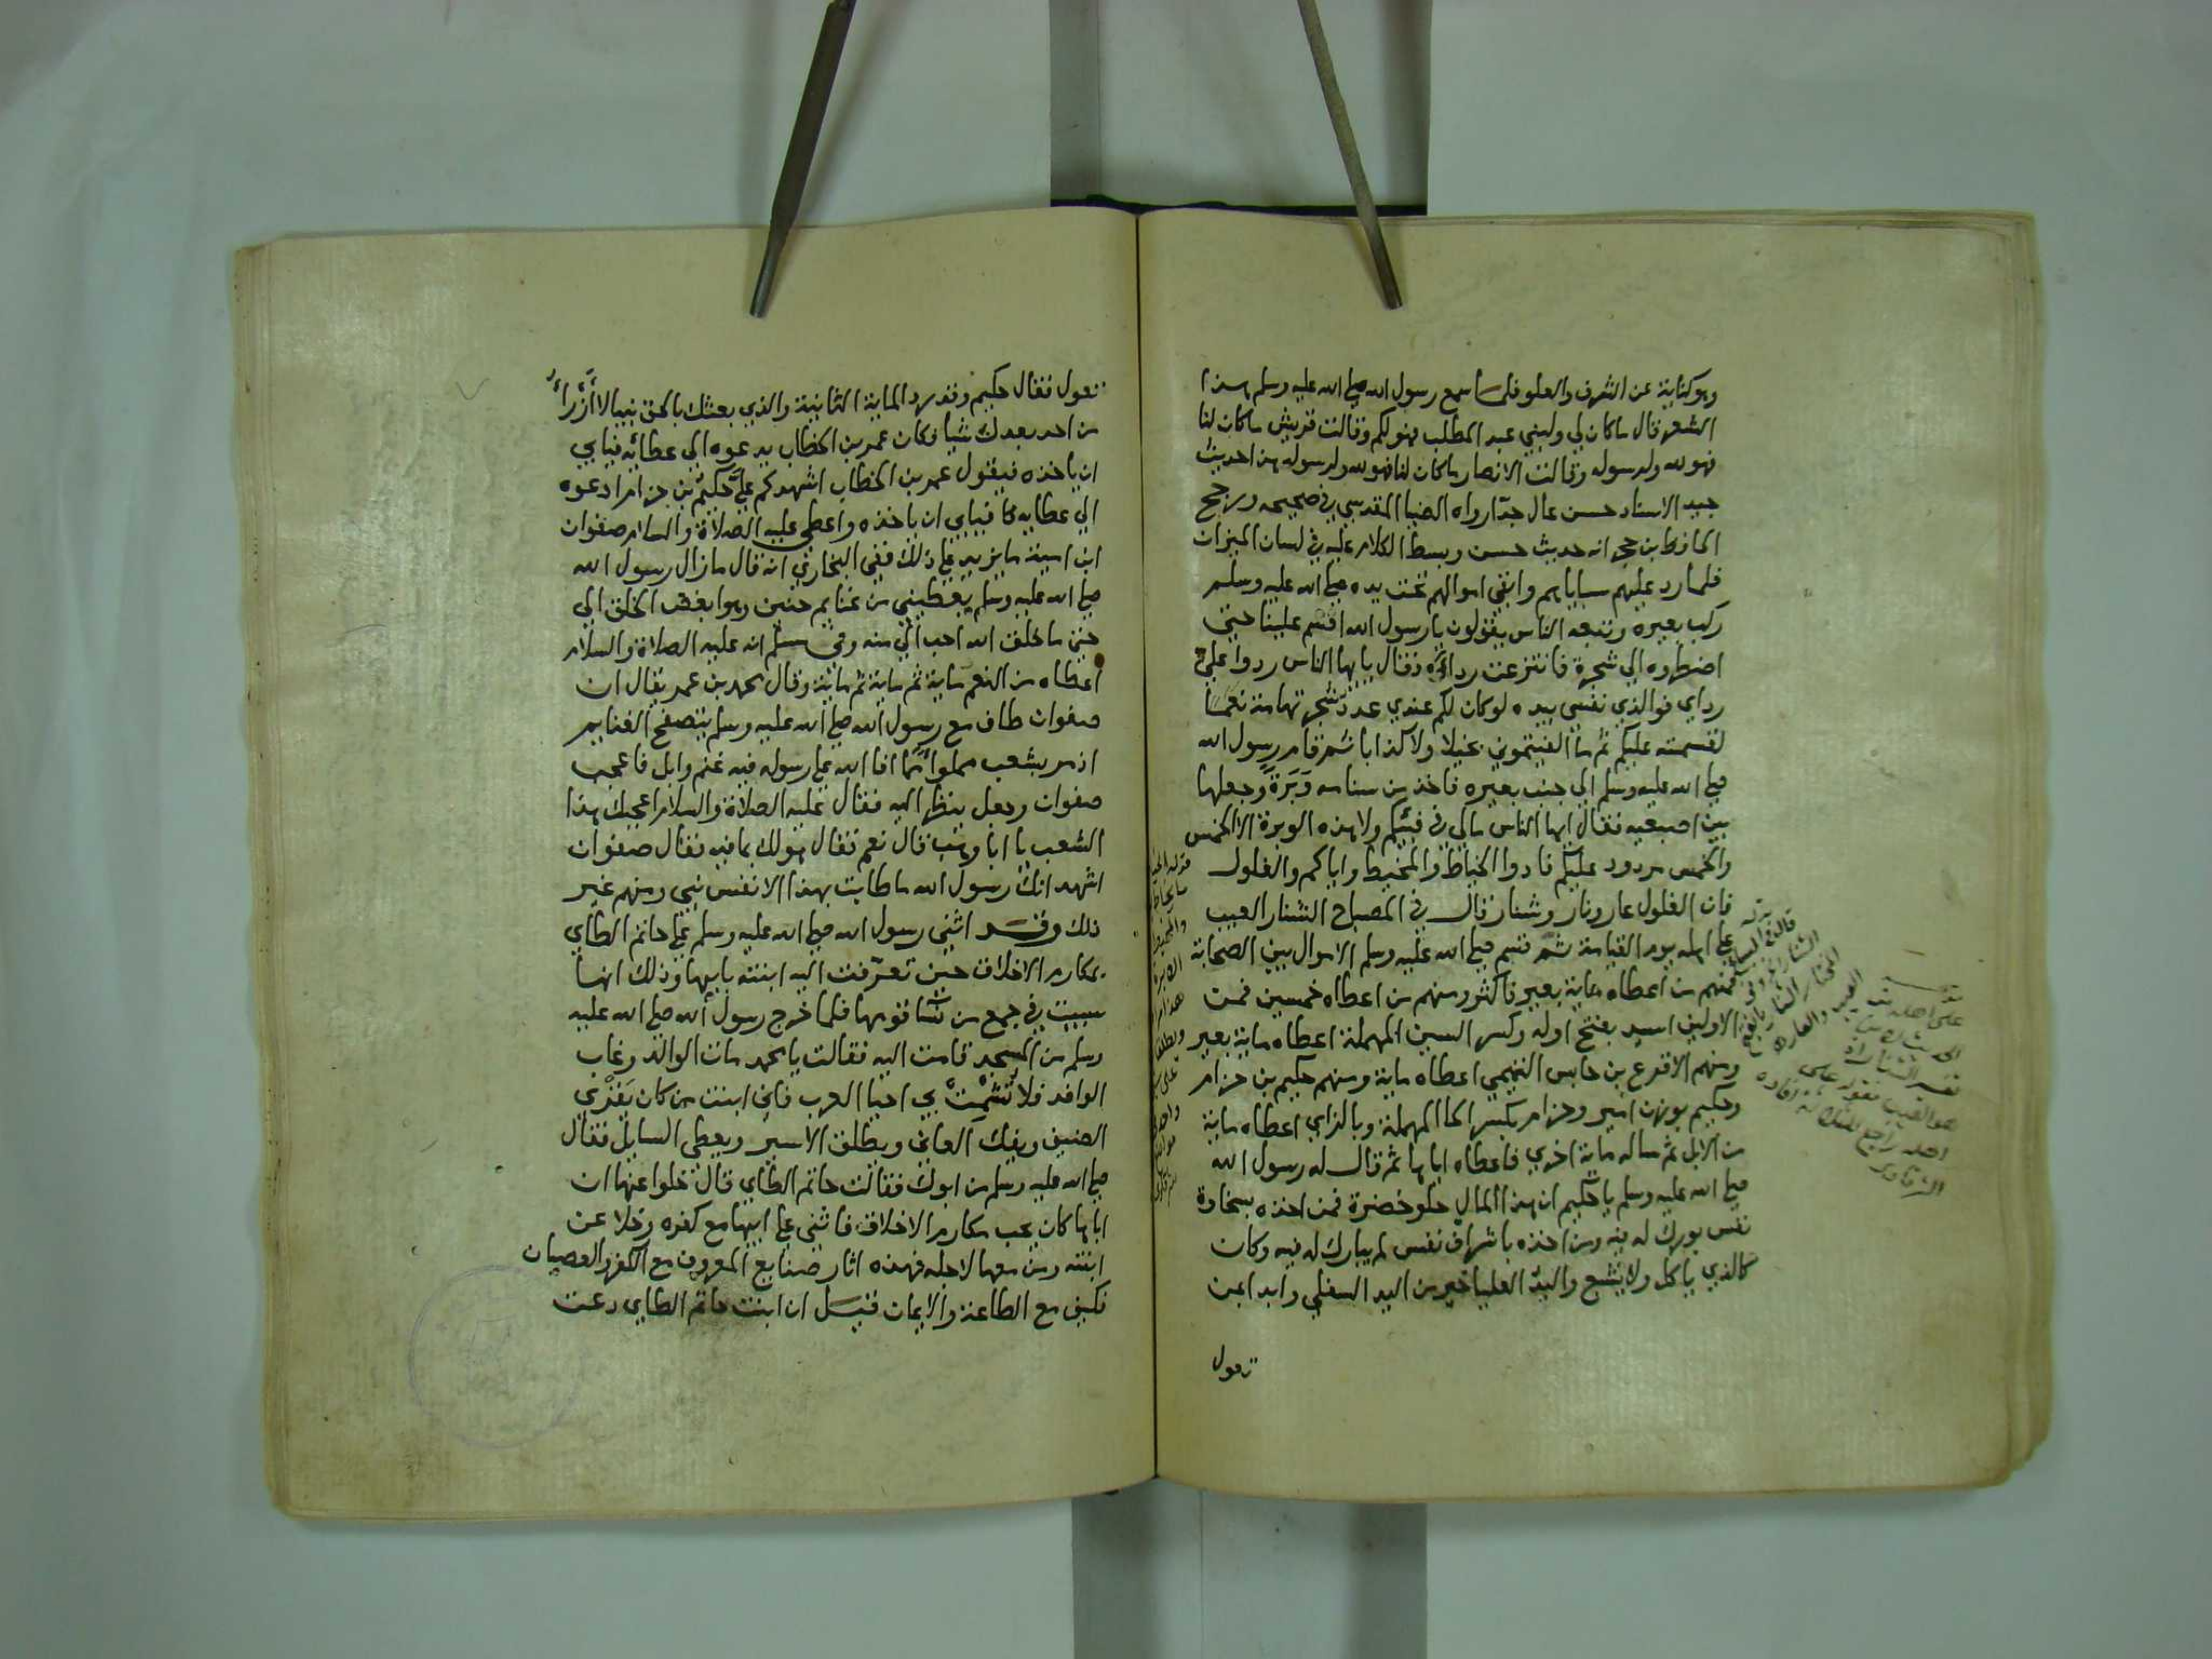 وهو كناية عن الشرف والعلو فلما سمع رسول الله صلى الله عليه وسلم هذا
الشعر قال ما كان لي ولبني عبد المطلب فهو لكم وقالت قريش ما كان لنا
فهو لله ولرسوله وقالت الانصار ما كان لنا فهو لله ولرسوله هذا حديث
جيد الاسناد حسن عال جدّا رواه الضيا المقدسي في صحيحه ورجح
الحافظ بن حجر انه حديث حسن وبسط الكلام عليه في لسان الميزان
فلما رد عليهم سباياهم وابقى اموالهم تحت يده صلى الله عليه وسلم
ركب بعيره وتبعه الناس يقولون يا رسول الله اقسم علينا حتى
اضطروه الي شجرة فانتزعت رداؤه فقال يا ايها الناس ردوا علي
رداي فوالذي نفسي بيده لو كان لكم عندي عدد شجر تهامة نعما
لقسمته عليكم ثم ما الفيتموني بخيلا ولا كذابا ثم قام رسول الله
صلى الله عليه وسلم الي جنب بعيره فاخذ من سنامه وَبَرَةً وجعلها
بين اصبعيه فقال ايها الناس مالي في فيئكم ولا هذه الوبرة الا الخمس
والخمس مردود عليكم فادوا الخياط والمخيط واياكم والغلول
فان الغلول عار ونار وشنار قال في المصباح الشنار العيب
على اهله يوم القيامة ثم قسم صلى الله عليه وسلم الاموال بين الصحابة
فمنهم من اعطاه ماية بعير فاكثر ومنهم من اعطاه خمسين فمن
الاولين اسيد بفتح اوله وكسر السين المهملة اعطاه ماية بعير
ومنهم الاقرع بن حابس التميمي اعطاه ماية ومنهم حكيم بن حزام
وحكيم بوزن امير وحزام بكسر الحا المهملة وبالزاي اعطاه ماية
من الابل ثم ساله ماية اخري فاعطاه اياها ثم قال له رسول الله
صلى الله عليه وسلم يا حكيم ان هذا المال حلو خضرة فمن اخذه بسخاوة
نفس بورك له فيه ومن اخذه باشراف نفس لم يبارك له فيه وكان
كالذي ياكل ولا يشبع واليد العليا خير من اليد السفلي وابدا بمن
تعول
تعول فقال حكيم وقد رد الماية الثانية والذي بعثك بالحق نبيا لا أَرْزَأُ
من احد بعدك شيا فكان عمر بن الخطاب يدعوه الي عطائه فيابي
ان ياخذه فيقول عمر بن الخطاب اشهدكم علي حكيم بن حزام ادعوه
الي عطايه فيابي ان ياخذه واعطى عليه الصلاة والسلام صفوان
ابن امية ما يزيد على ذلك ففي البخاري انه قال ما زال رسول الله
صلى الله عليه وسلم يعطيني من غنايم حنين وهو ابغض الخلق الي
حتي ما خلق الله احب الي منه وفي مسلم انه عليه الصلاة والسلام
اعطاه من النعم ماية ثم ماية ثم ماية وقال محمد بن عمر يقال ان
صفوان طاف مع رسول الله صلى الله عليه وسلم يتصفح الغنايم
اذ مر بشعب مملوا مما افا الله على رسوله فيه غنم وابل فاعجب
صفوان وجعل ينظر اليه فقال عليه الصلاة والسلام اعجبك هذا
الشعب يا ابا وهب قال نعم فقال هو لك بما فيه فقال صفوان
اشهد انك رسول الله ما طابت بهذا الا نفس نبي ومنهم غير
ذلك وقد اثنى رسول الله صلى الله عليه وسلم على حاتم الطاي
بمكارم الاخلاق حين تعرّفت اليه ابنته بابيها وذلك انها
سبيت في جمع من نسا قومها فلما خرج رسول الله صلى الله عليه
وسلم من المسجد قامت اليه فقالت يا محمد مات الوالد وغاب
الوافد فلا تُشْمِتْ بي احيا العرب فاني ابنت من كان يَقْرِي
الضيف ويفك العاني ويطلق الاسير ويعطي السايل فقال
صلى الله عليه وسلم من ابوك فقالت حاتم الطاي قال خلوا عنها ان
اباها كان يحب مكارم الاخلاق فاثنى على ابيها مع كفره وخلا عن
ابنته ومن معها لاجله فهذه اثار صنايع المعروف مع الكفر والعصيان
فكيف مع الطاعة والايمان قيل ان ابنت حاتم الطاي دعت